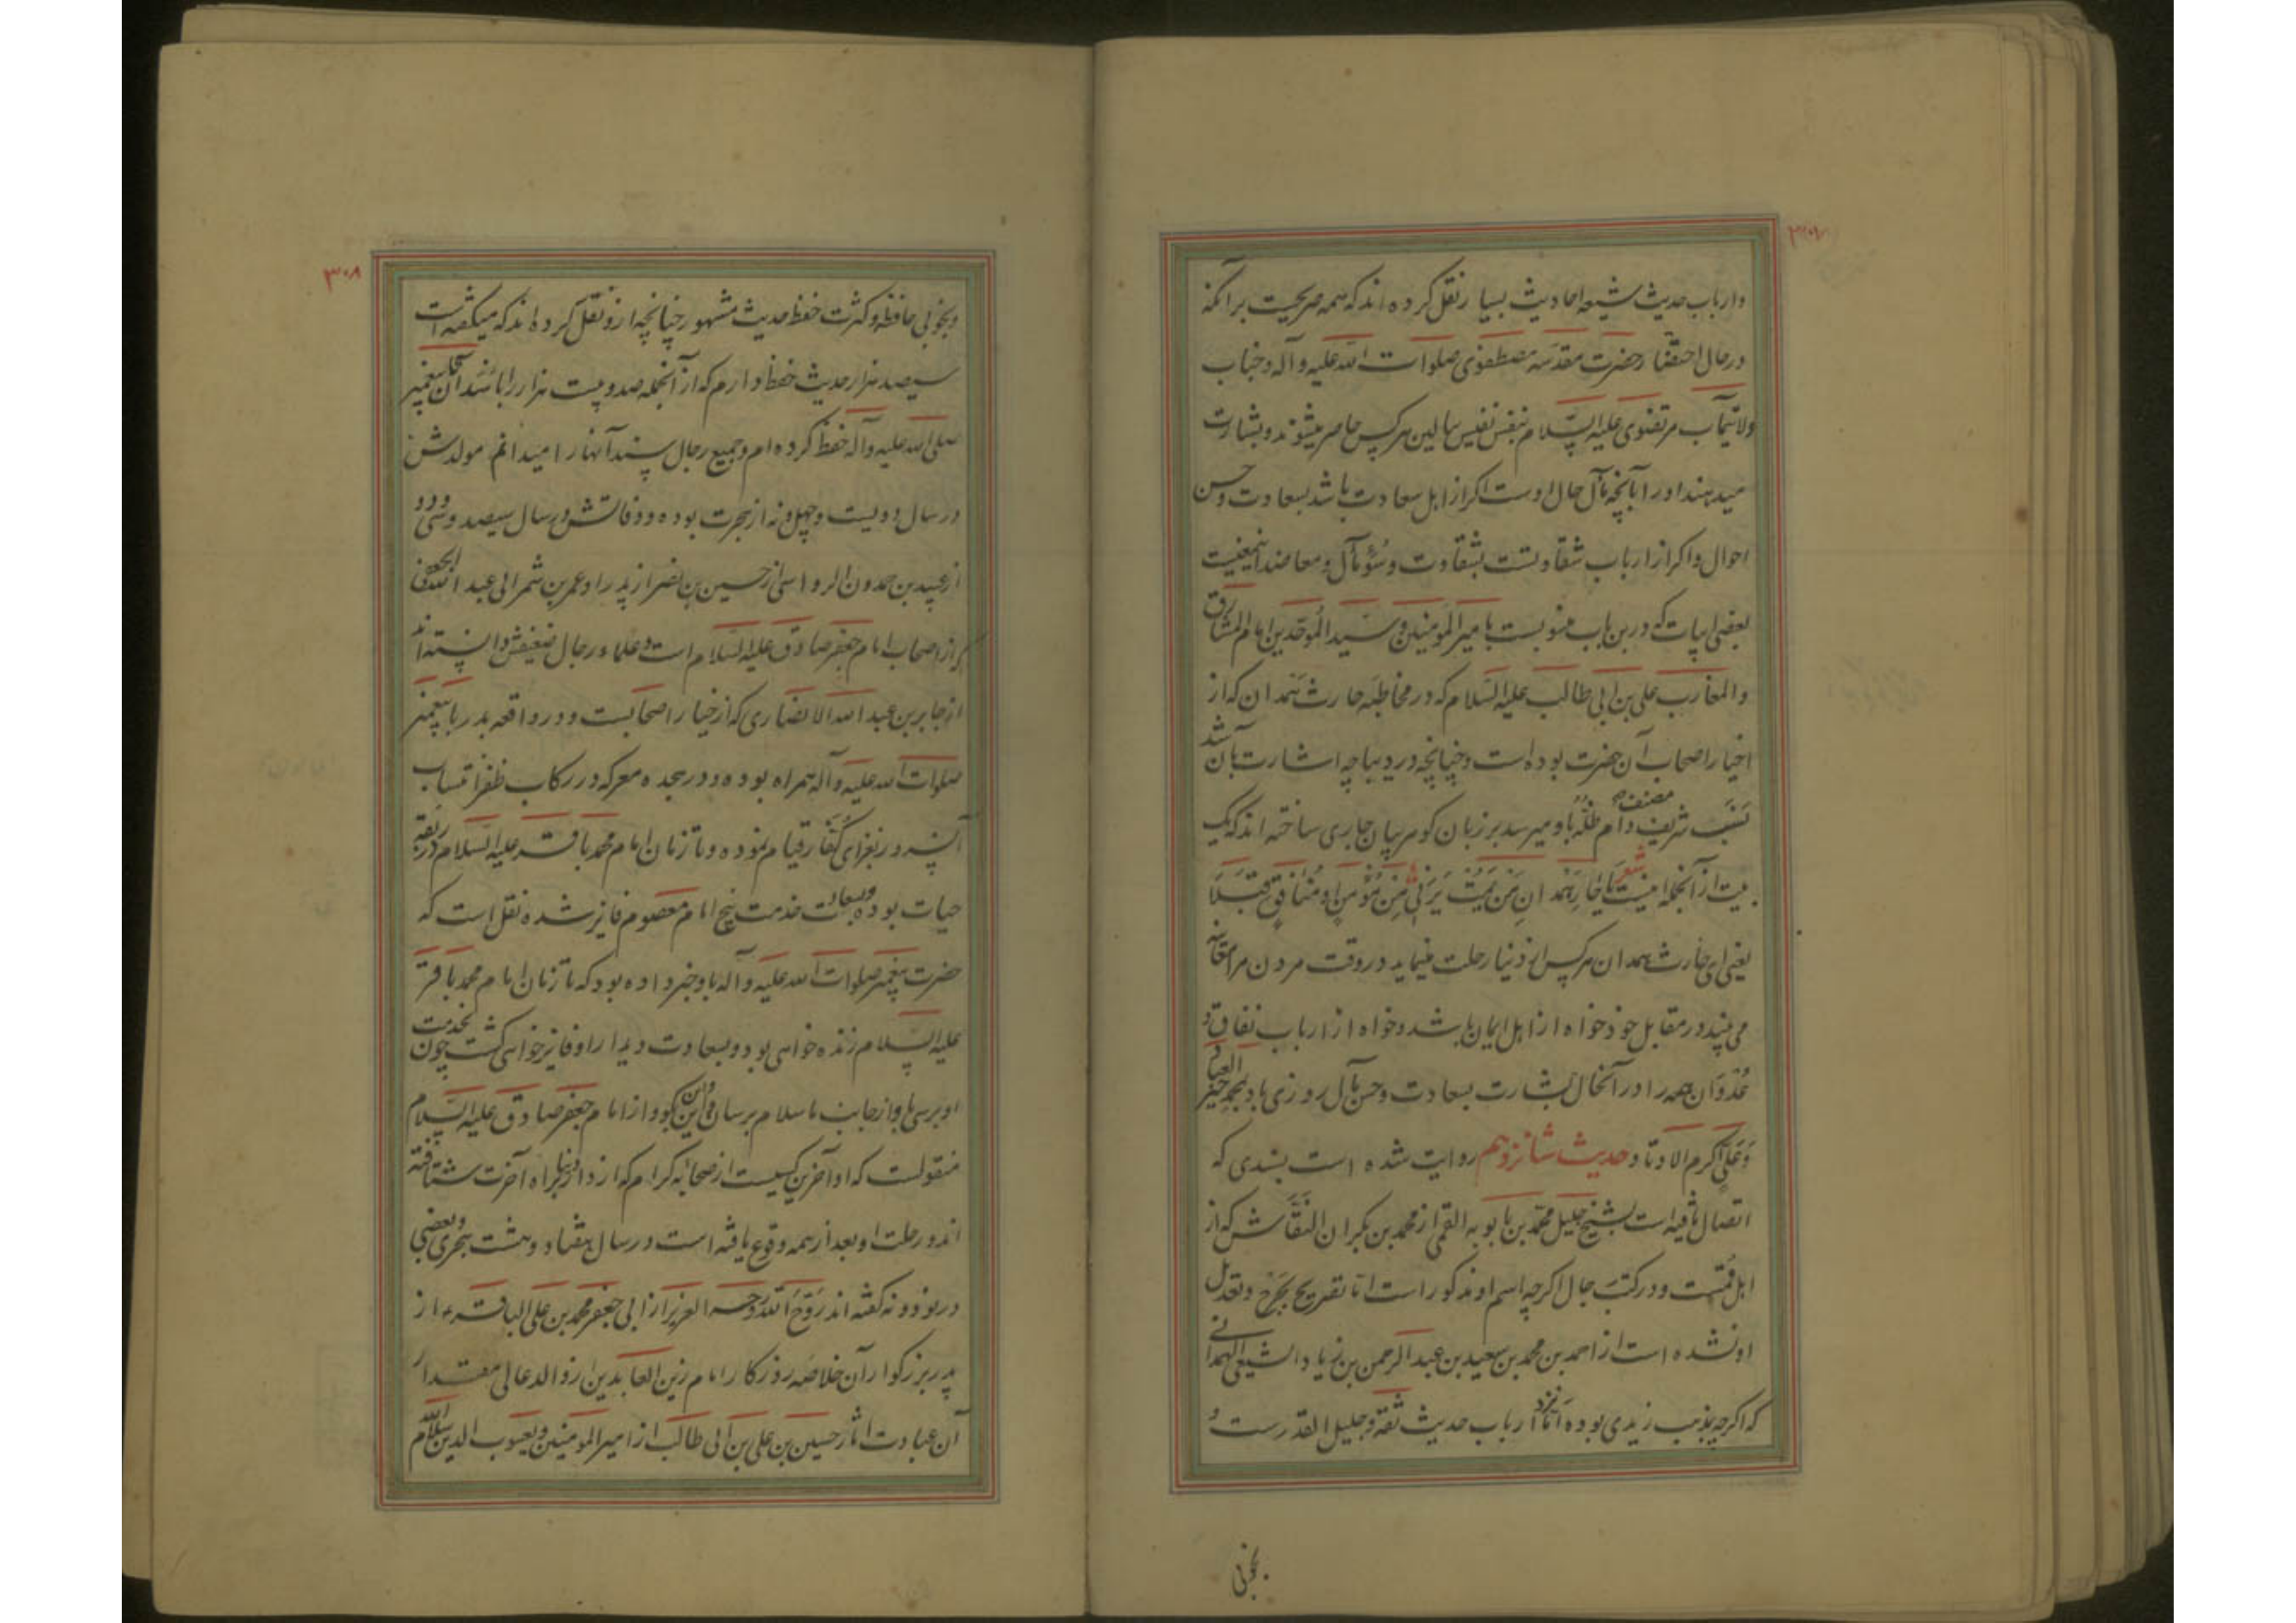 ۳۰۷
وارباب حدیث شیعه احادیث بسیار نقل کرده اند که همه صریحست برآنکه
درحال احتضار حضرت مقدسه مصطفوی صلوات الله علیه وآله وجناب
ولایتمآب مرتضوی علیه السلام بنفس نفیس ببالین هرکس حاضر میشوند وبشارت
میدهند اورا بآنچه مآل حال اوست اکر از اهل سعادت باشد بسعادت وحسن
احوال واکر از ارباب شقاوتست بشقاوت وسُوءِ مآل ومعاضد اینمعنیست
بعضی ابیات که درین باب منسوبست بامیرالمومنین وسید الموحدین امام المشارق
والمغارب علی بن ابی طالب علیه السلام که در مخاطبه حارث همدان که از
اخیار اصحاب آن حضرت بوده است وچنانچه در دیباچه اشارت بآن شد
نسَب شریف مصنف دام ظلّه باو میرسد بر زبان کوهربیان جاری ساخته اند که یک
بیت از آنجمله اینست شعر یاحَارِ هَمْدانِ مَن یَمُتْ یَرَنی مِنْ مُؤْمِنٍ اَوْ مُنَافِقٍ قُبُلًا
یعنی ای حارث همدان هرکس از دنیا رحلت مینماید در وقت مردن مرا معاینه
می بیند در مقابل خود خواه از اهل ایمان باشد وخواه از ارباب نفاق و
عُدْوَان همه را در آنحال بشارت بسعادت وحسن مآل روزی باد بمحمد خیر العباد
وَعَلیّ اکرم الاوتاد حدیث شانزدهم روایت شده است بسندی که
اتصال یافته است بشیخ جلیل محمد بن بابویه القمی از محمد بن بکران النقّاش که از
اهل قمست ودر کتب رجال اکرچه اسم او مذکور است اما تصریح بجَرْح وتعدیل
او نشده است از احمد بن محمد بن سعید بن عبد الرحمن بن زیاد الشیعی الهمدانی
که اکرچه بمذهب زیدی بوده اَمّا نزد ارباب حدیث ثقه وجلیل القدرست و
بخوبی
۳۰۸
وبخوبی حافظه وکثرت حفظ حدیث مشهور چنانچه ازو نقل کرده اند که میکفته است
سیصد هزار حدیث حفظ دارم که از آنجمله صد وبیست هزار را باسند آن تا پیغمبر
صلی الله علیه وآله حفظ کرده ام وجمیع رجال سند آنها را میدانم مولدش
در سال دویست وچهل ونه از هجرت بوده ووفاتش در سال سیصد وسی ودو
از عبید بن حمدون الرواسی از حسین بن نصر از پدر او عمر بن شمر ابی عبد الله الجعفی
که از اصحاب امام جعفر صادق علیه السلام است وعلماء رجال ضعیفش دانسته اند
از جابر بن عبد الله الانصاری که از خیار اصحابست ودر واقعه بدر با پیغمبر
صلوات الله علیه وآله همراه بوده ودر هجده معرکه در رکاب ظفر انتساب
آنسرور بغزای کُفّار قیام نموده وتا زمان امام محمد باقر علیه السلام در ربقه
حیات بوده وبسعادت خدمت پنج امام معصوم فایز شده نقل است که
حضرت پیغمبر صلوات الله علیه وآله باو خبر داده بود که تا زمان امام محمد باقر
علیه السلام زنده خواهی بود وبسعادت دیدار او فایز خواهی کشت چون بخدمت
او برسی باو از جانب ما سلام برسان و این بکو و از امام جعفر صادق علیه السلام
منقولست که او آخرین کسیست از صحابه کرام که از دار دنیا براه آخرت شتافته
اند ورحلت او بعد از همه وقوع یافته است در سال هفتاد وهشت هجری وبعضی
در نود ونه کفته اند رَوّحَ اللهُ روحـه العزیز از ابی جعفر محمد بن علی الباقر ع از
پدر بزرکوار آن خلاصه روزکار امام زین العابدین از والد عالی مقـدار
آن عبادت آثار حسین بن علی بن ابی طالب از امیر المومنین ویعسوب الدین سلام الله